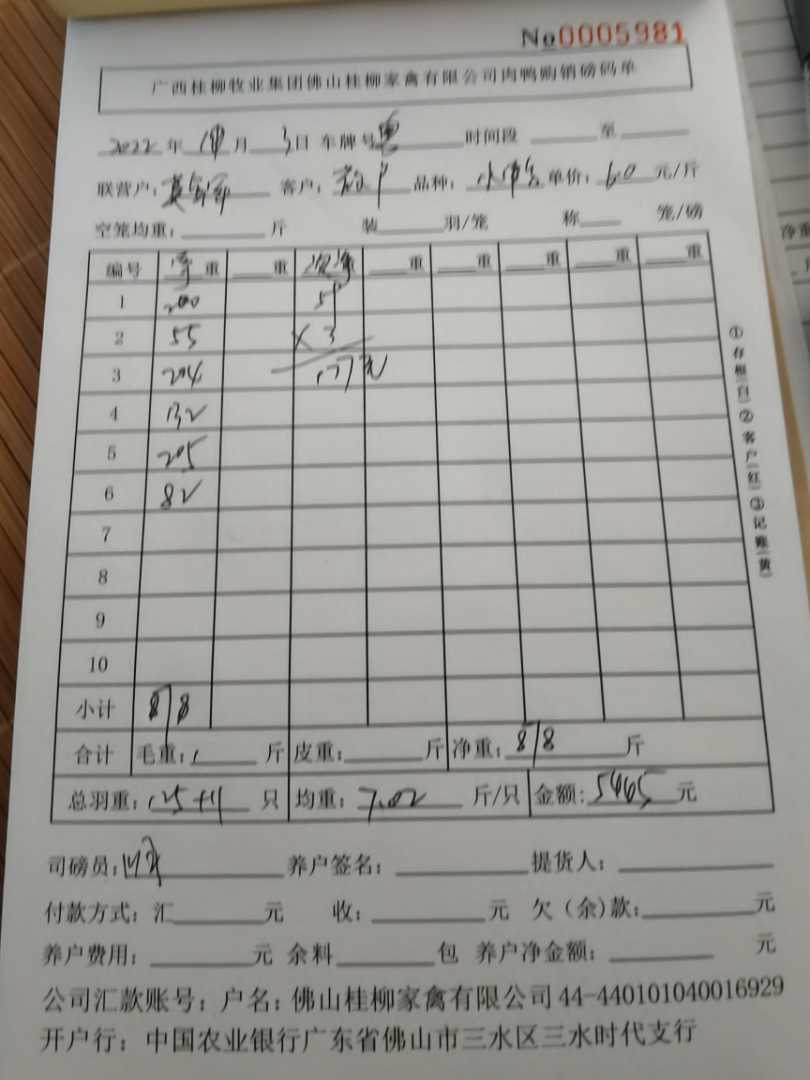 No0005981
广西桂柳牧业集团佛山桂柳家禽有限公司肉鸭购销磅码单
2022 年 月 3日 车牌号 粤 时间段 至
联营户： 客户： 品种： 单价： 6.0 元/斤
空笼均重： 斤 装 羽/笼 称 笼/磅
编号 重 重 重 重 重 重 重
1 200 59
2 55 ×3
3 204 177元
4 132
5 205
6 82
7
8
9
10
小计 878
合计 毛重： 斤 皮重： 斤 净重： 878 斤
总羽重： 125+11 只 均重： 7.02 斤/只 金额： 5445 元
司磅员： 养户签名： 提货人：
付款方式：汇 元 收： 元 欠（余）款： 元
养户费用： 元 余料 包 养户净金额： 元
公司汇款账号：户名：佛山桂柳家禽有限公司 44-440101040016929
开户行：中国农业银行广东省佛山市三水区三水时代支行
①存根(白)②客户(红)③记账(黄)